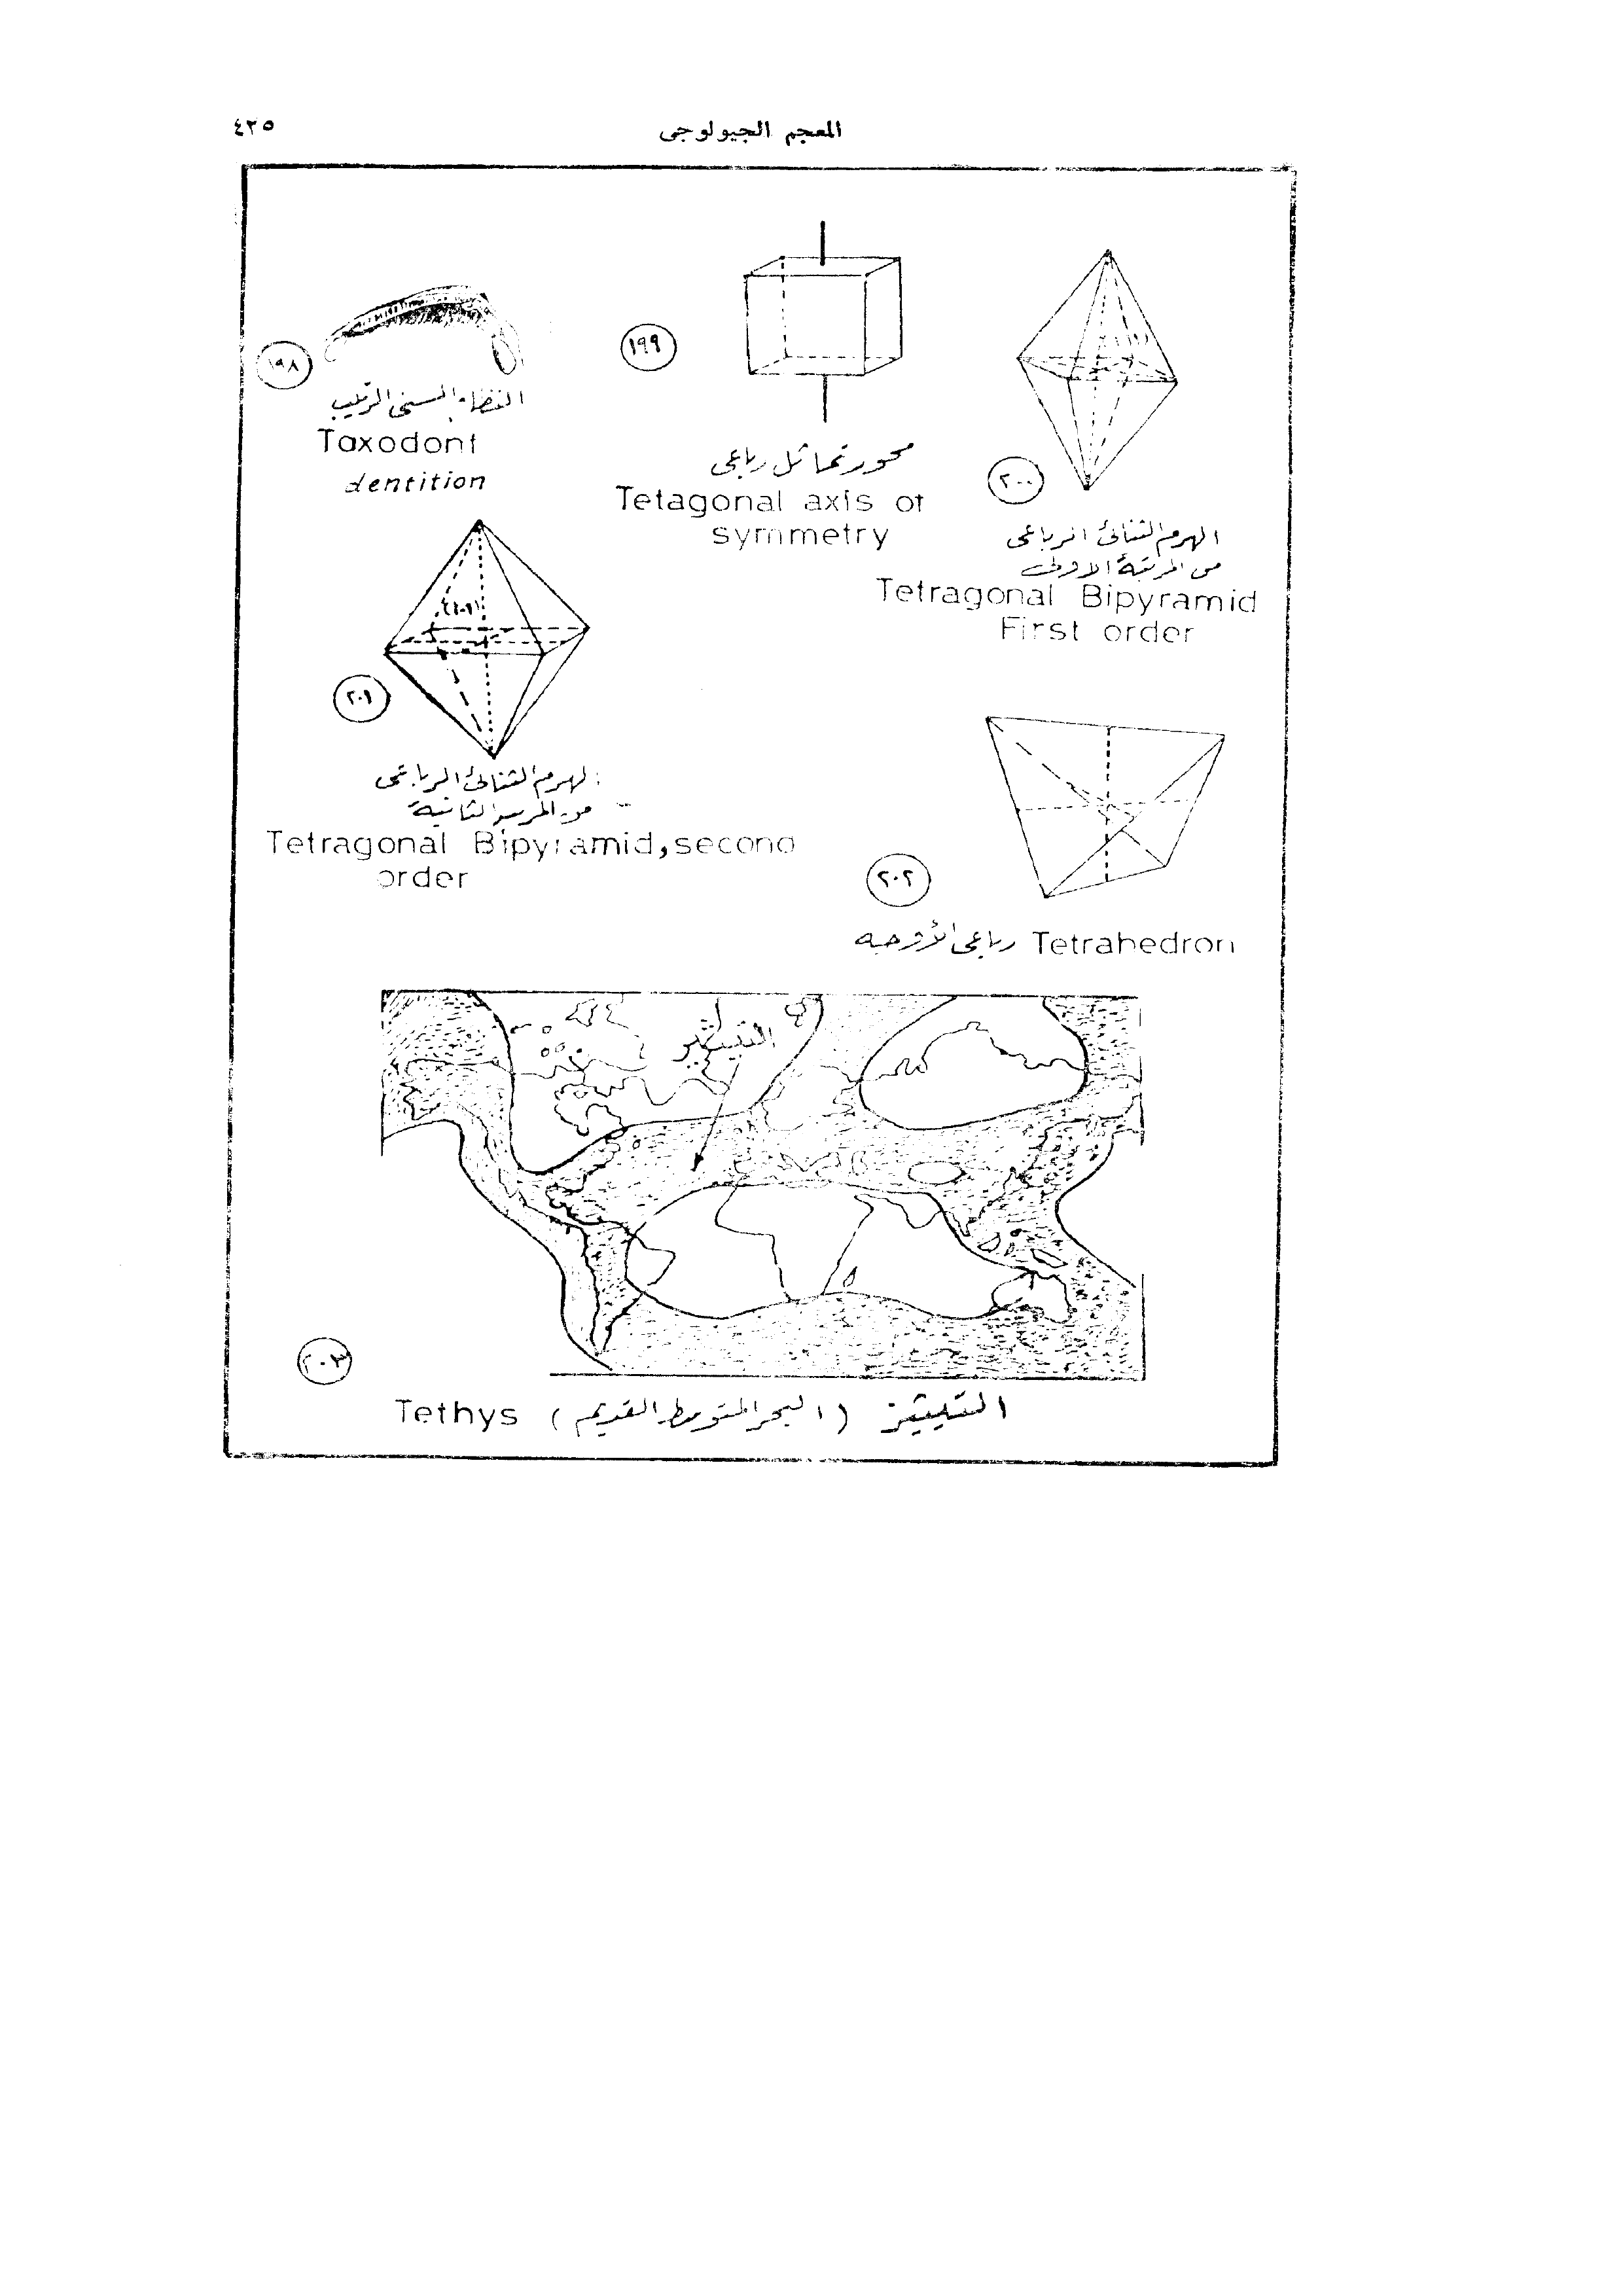 المعجم الجيولوجى
٤٢٥
١٩٨
الرتيب
Taxodont
dentition
١٩٩
محور تماثل رباعى
Tetagonal axis of
symmetry
٢٠٠
الهرم الثنائى الرباعى
من المرتبة الاولى
Tetragonal Bipyramid
First order
٢٠١
الهرم الثنائى الرباعى
من الثانية
Tetragonal Bipyramid, second
order
٢٠٢
رباعى الأوجه Tetrahedron
التيثيز
٢٠٣
التيثيز (البحر المتوسط القديم) Tethys